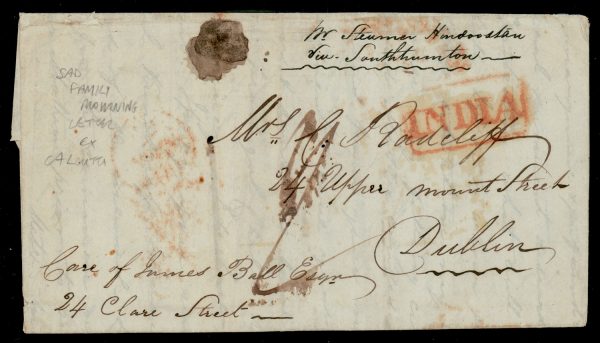 Pr Steamer Hindoostan
Via Southhamton
SAD
FAMILY
MOURNING
LETTER
EX
CALCUTTA
INDIA
Mrs C. Radcliff
24 Upper mount Street
Dublin
Care of James Ball Esqr
24 Clare Street